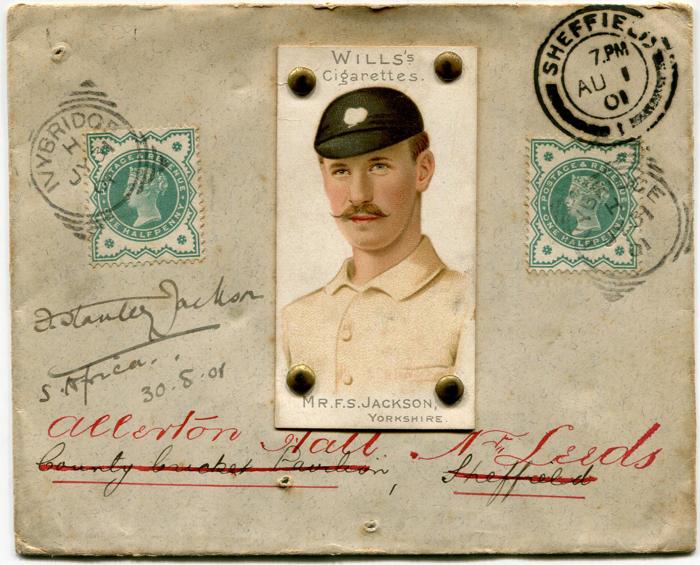 WILLS's
Cigarettes.
SHEFFIELD
7.PM
AU 1
01
1
IVYBRIDGE
POSTAGE & REVENUE
ONE HALFPENNY
POSTAGE & REVENUE
ONE HALFPENNY
JY 31
01
F Stanley Jackson
S. Africa..
30.8.01
MR. F.S. JACKSON,
YORKSHIRE.
Allerton Hall Nr Leeds
County Cricket Pavilion, Sheffield